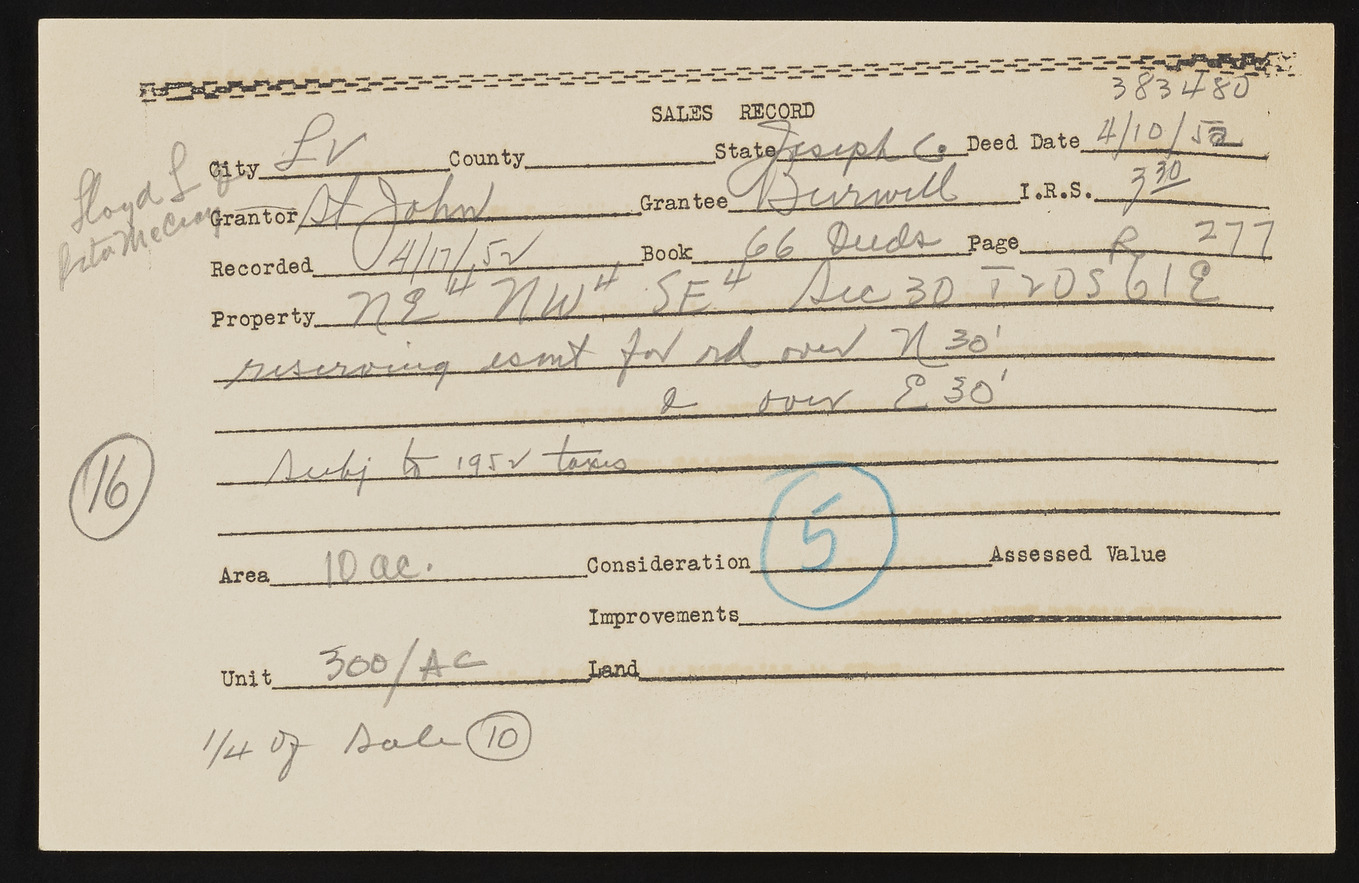 383480
SALES RECORD
City LV County State Joseph C. Deed Date 4/10/52
Floyd L &
Rita McCroy
Grantor St John Grantee Burwell I.R.S. 3 30
Recorded 4/17/52 Book 66 Deeds Page R 277
Property NE 4 NW 4 SE 4 Sec 30 T20S 61E
reserving esmt for rd over N 30'
& over E 30'
Subj to 1952 taxes
16
Area 10 ac. Consideration 5 Assessed Value
Improvements
Unit 300/AC Land
1/4 of Sale 10